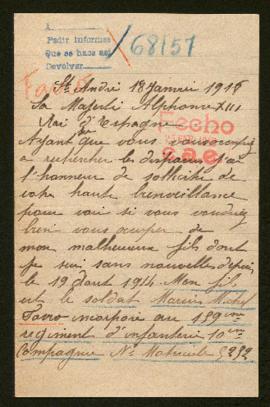 A
Pedir informes
Que se haga asi
Devolver
68/57
Favre
St André 18 Janvier 1916
Sa Majesté Alphonse XIII
Roi d'Espagne
Fecho
Ayant que vous vous occupiez
a rechercher les disparus j'ai
l'honneur de solliciter de
votre haute bienveillance
pour voir si vous voudriez
bien vous occuper de
mon malheureux fils dont
je suis sans nouvelles depuis
le 19 Aout 1914 Mon fils
est le soldat
Favre incorporé au 159me
régiment d'infanterie 10me
Compagnie No Matricule 5292